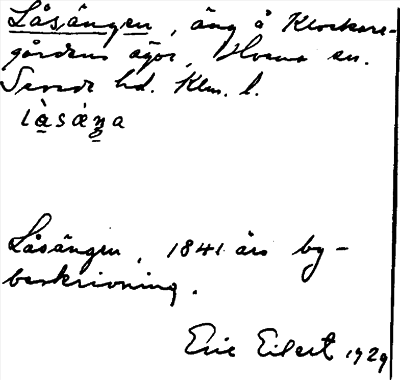 Låsängen, äng å Klockare-
gårdens ägor, Hvena sn.
Sevede hd. Klm. l.
làsáŋa
Låsängen, 1841 års by-
beskrivning.
Eric Eilert 1929